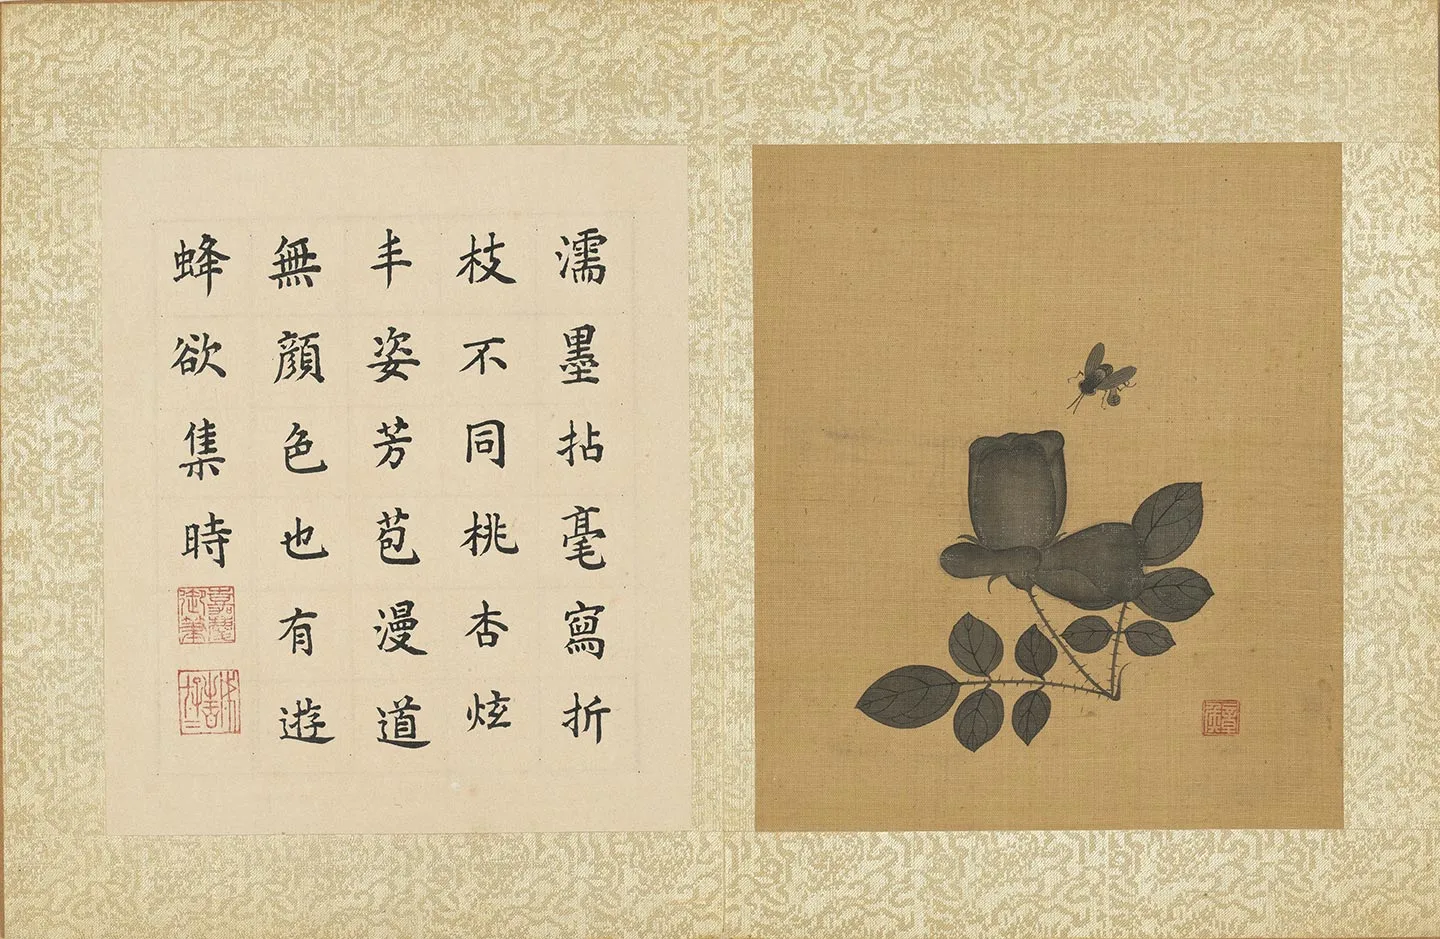 濡墨拈毫寫折
枝不同桃杏炫
丰姿芳苞漫道
無顔色也有遊
蜂欲集時